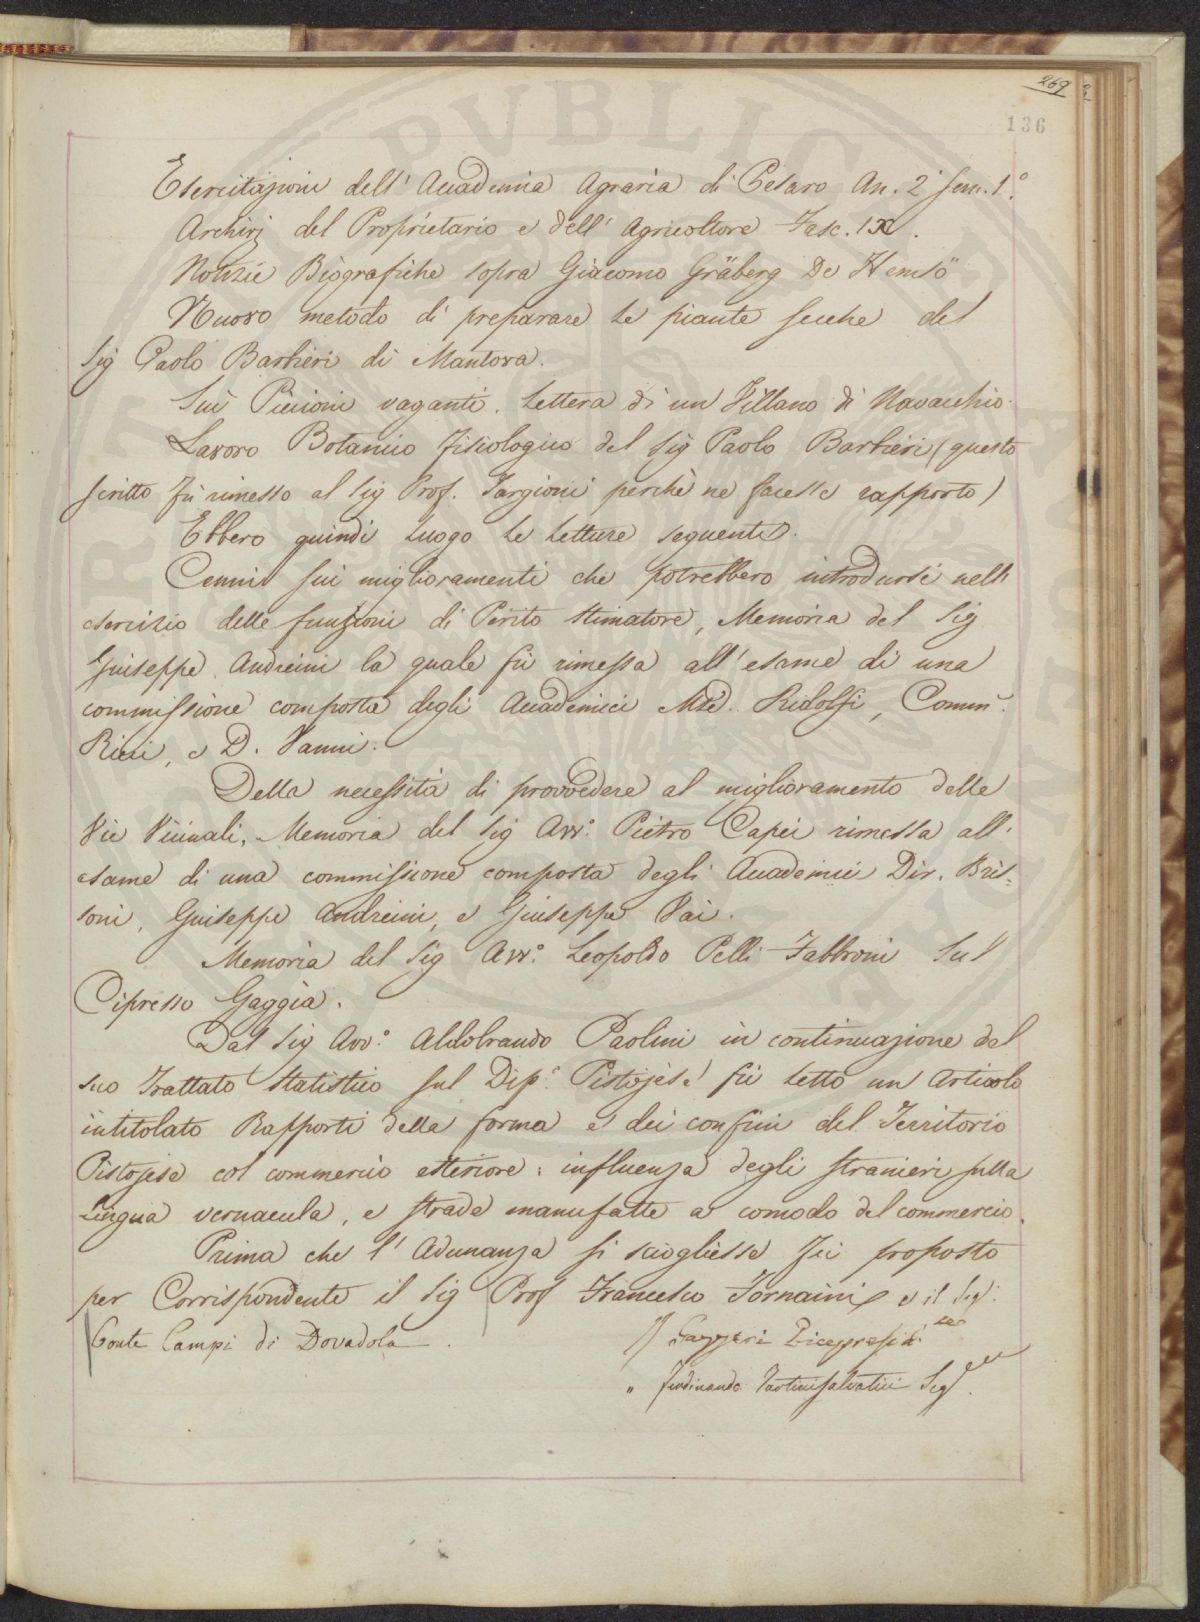 269
136
Esercitazioni dell' Accademia Agraria di Pesaro An. 2° Sem. 1.°
Archivj del Proprietario e dell' Agricoltore Fasc. IX.
Notizie Biografiche sopra Giacomo Gräberg De Hemsö
Nuovo metodo di preparare le piante secche del
Sig Paolo Barbieri di Mantova.
Sui Piccioni vaganti. Lettera di un Villano di Navacchio.
Lavoro Botanico Fisiologico del Sig Paolo Barbieri (questo
scritto fù rimesso al Sig Prof. Targioni perchè ne facesse rapporto)
Ebbero quindi luogo le letture seguenti.
Cenni sui miglioramenti che potrebbero introdursi nell'
esercizio delle funzioni di Perito Stimatore, Memoria del Sig
Giuseppe Andreini la quale fù rimessa all' esame di una
commissione composta degli Accademici Mse. Ridolfi, Comm.
Ricci, e D. Vanni.
Della necessità di provvedere al miglioramento delle
Vie Vicinali, Memoria del Sig Avv.° Pietro Capei rimessa all'
esame di una commissione composta degli Accademici Dir. Bris=
soni, Giuseppe Andreini, e Giuseppe Vai.
Memoria del Sig Avv.° Leopoldo Pelli Fabbroni Sul
Cipresso Gaggia.
Dal Sig Avv.° Aldobrando Paolini in continuazione del
suo Trattato Statistico sul Dip.° Pistojese fù letto un Articolo
intitolato Rapporti della forma e dei confini del Territorio
Pistojese col commercio esteriore: influenza degli stranieri sulla
Lingua vernacula, e strade manufatte a comodo del commercio.
Prima che l' Adunanza si sciogliesse fù proposto
per Corrispondente il Sig Prof Francesco Tornaini e il Sig:
Conte Campi di Dovadola.
Gazzeri Vicepresid.te
" Ferdinando Tartini Salvatici Seg.